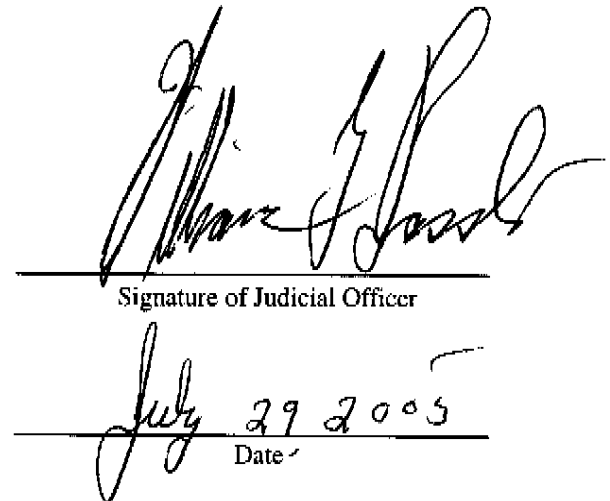 William
Signature of Judicial Officer
July 29 2005
Date